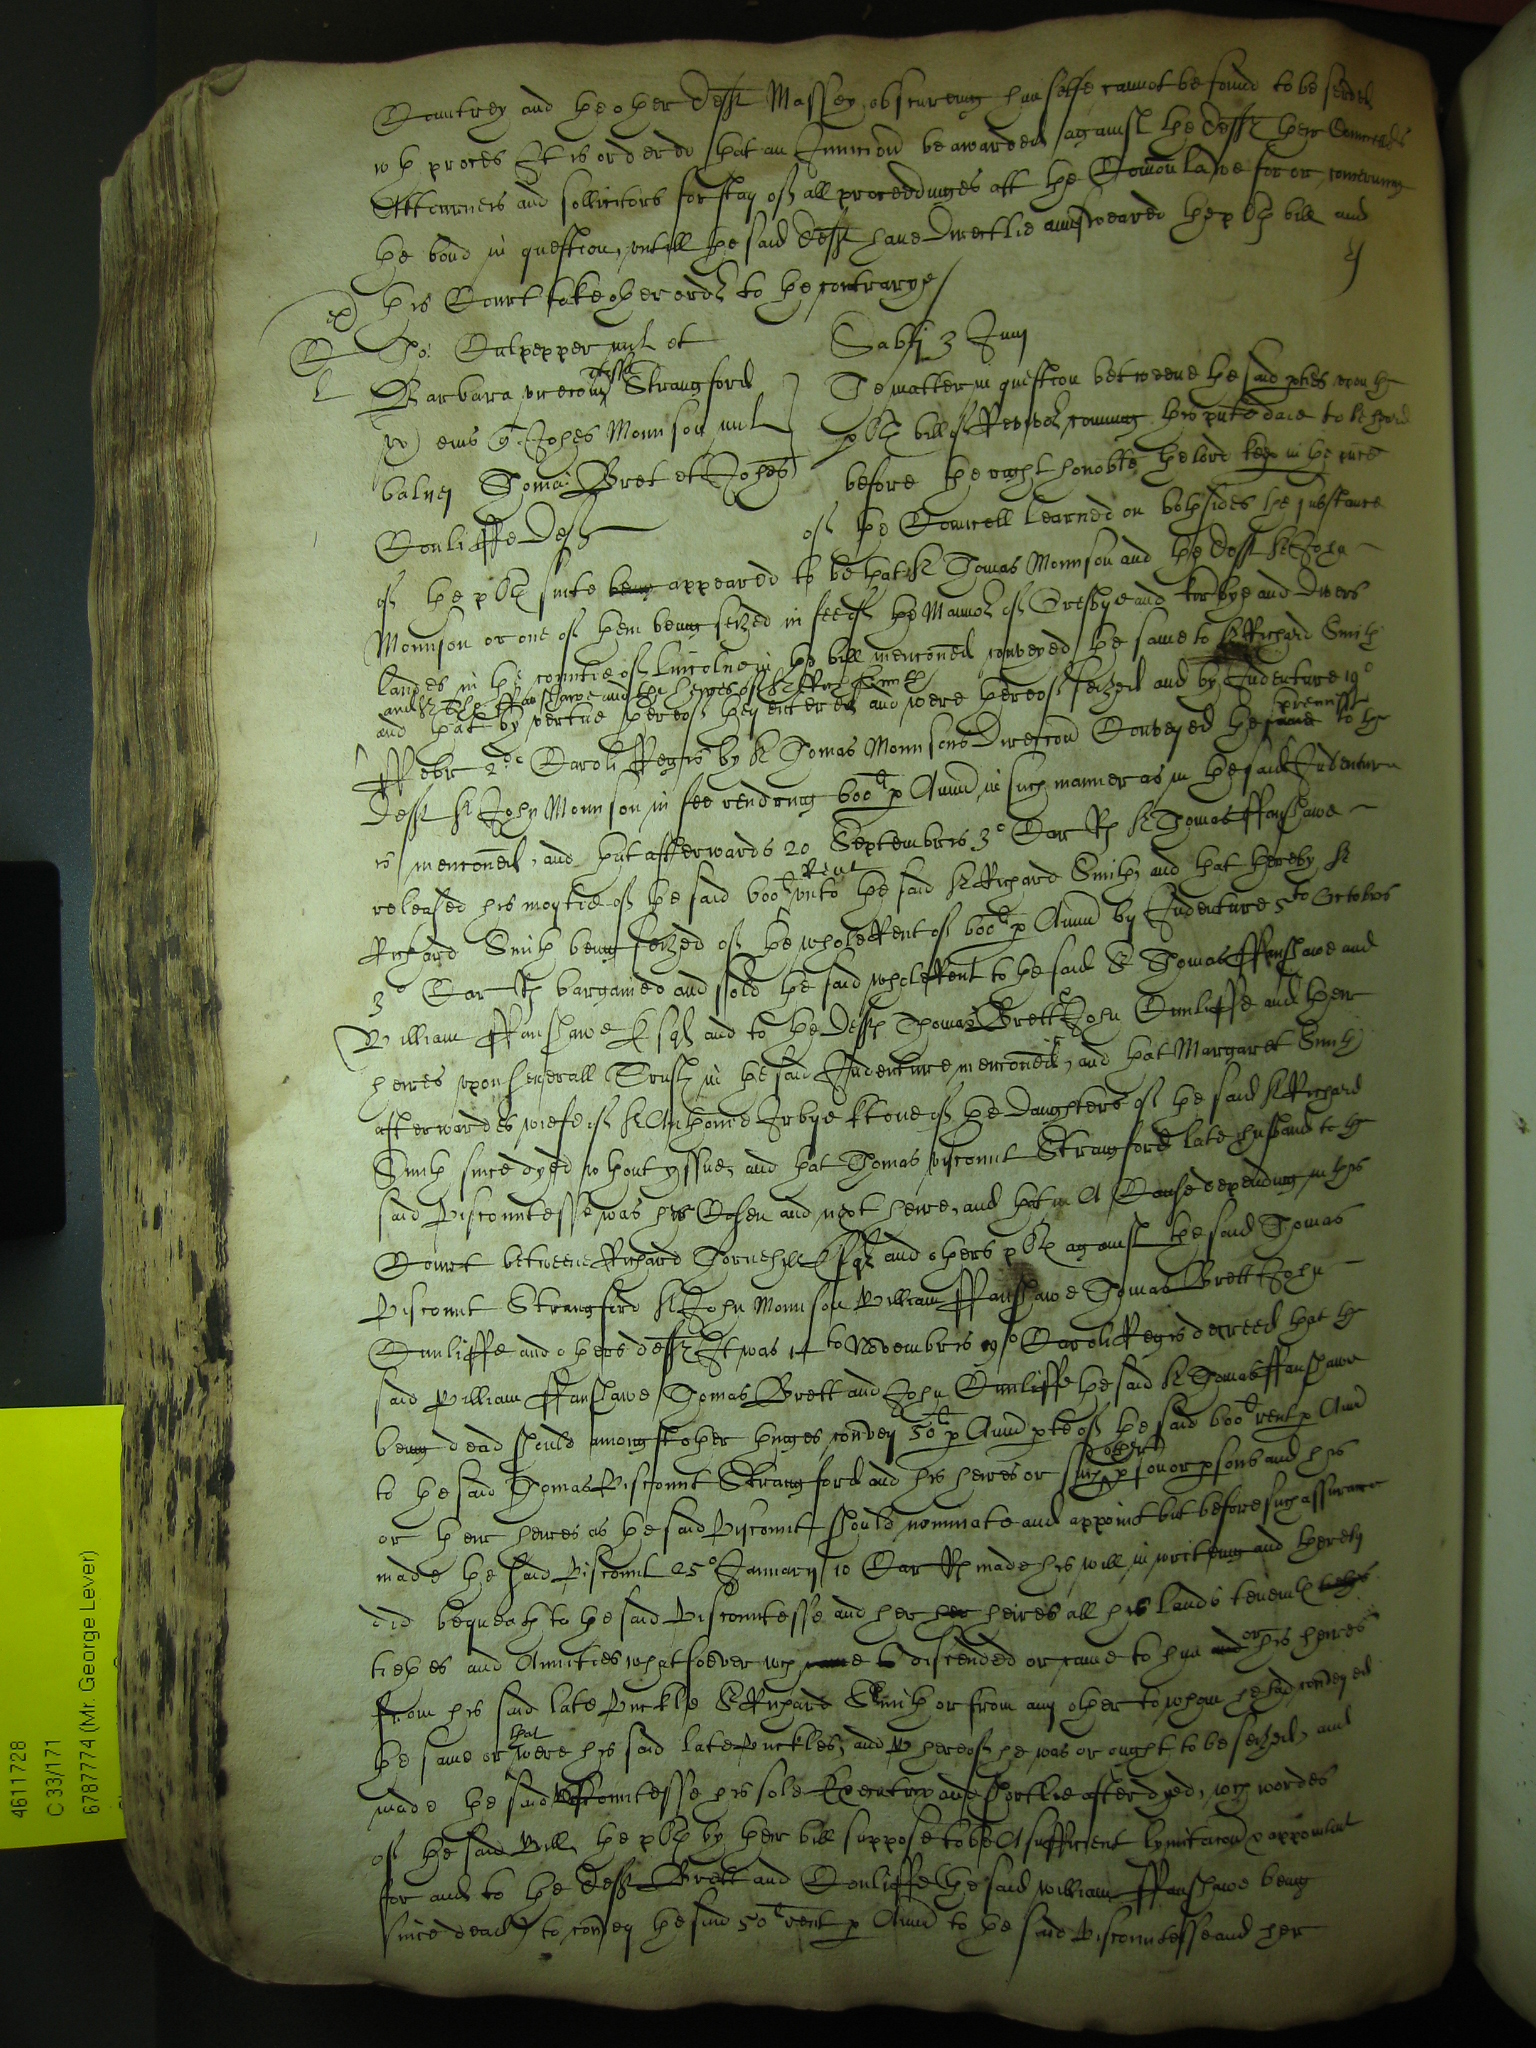 Countrey and the other defft Massey obscureing himselfe cannot be found to be served
wth proces It is ordered that an Iniuncion be awarded against the defft their Councells
Atturneis and sollicitors for stay of all proceedinges att the Comon lawe for or concerning
the bond in question, untill the said defft have directlie aunsweared the plt bill and
this Court take other order to the contrarye
Tho: Culpepper mil et
Barbara vicecomitissa Strangford
ux eius Johes Monnson mil
balnei Thoma: Bret et Johes
Conliffe Deft
Sabti 3 Junij
The matter in question betweene the said pties upon the
plt bill of Revivor coming this pute daie to be heard
before the right honoble the lord keep in the pnce
of the Councell learned on both sides the substance
of the plt suite being appeared to be that Sr Thomas Monnson and the deft Sr John
Monnson or one of them being seized in fee of the Mannor of Thresbye and Kirbye and divers
landes in the countie of Lincolne in the bill menconed conveyed the same to Sr Richard Smith
and Sr Tho: ffanshawe and the heires of Sr Ric: Smith
and that by vertue thereof they entered and were thereof seized and by Indenture 19o
premisses
ffebr 2do Caroli Regis by Sr Thomas Monnsons direccon Conveyed the same to the
defft Sr John Monnson in fee rendring 600l p Annu in such manner as in the said Indenture
is menconed, and that afterwards 20 Septembris 3o Car Rs Sr Thomas ffanshawe
Rent
released his moytie of the said 600l unto the said Sr Richard Smith, and that thereby Sr
Richard Smith being seized of the whole Rent of 600l p Annu by Indenture 5to Octobris
3o Car Rs bargained and sold the said whole Rent to the said Sr Thomas ffanshawe and
William ffanshawe Esqr and to the Deft Thomas Brett John Cunliffe and their
heires upon severall Trust in the said Indenture menconed, and that Margaret Smith
afterwardes wiefe of Sr Anthonie Irbye Kt one of the Daughters of the said Sr Richard
Smith since dyed without yssue, and that Thomas viscount Strangford late husband to the
said Viscountesse was his Cosen and next heire, and that in A Cause depending in this
Court betweene Richard Thornehill Esqr and others plt against the said Thomas
Viscount Strangford Sr John Monnson William ffanshawe Thomas Brett John
Cunliffe and others defft It was 14to Novembris 9o Caroli Regis decreed that the
said William ffanshawe Thomas Brett and John Cunliffe the said Sr Thomas ffanshawe
being dead should amongst other thinges convey 50l p Annu pte of the said 600l rent p Annu
other
to the said Thomas Viscount Strangford and his heires or such pson or psons and his
or their heires as the said Viscount should nominate and appoint but before such assurance
made the said Viscount 25o Januarij 10 Car Rs made his will in writeing and thereby
did bequeath to the said Viscountesse and her her heires all his lands tenemts
tiethes and Annities whatsoever wch discended or came to him or his heires
from his said late Unckle Sr Richard Smith or from any other to whom he had conveyed
that
the same or were his said late Unckles, and thereof he was or ought to be seized, and
made the said Viscountesse his sole Executrix and shortlie after dyed, wch wordes
of the said Will, the plt by their bill suppose to be A sufficient lymitacon & appointmt
for and to the Deft Brett and Conliffe the said William ffanshawe being
since dead to convey the said 50l rent p Annu to the said Viscountesse and her
4611728
C 33/171
6787774 (Mr. George Lever)